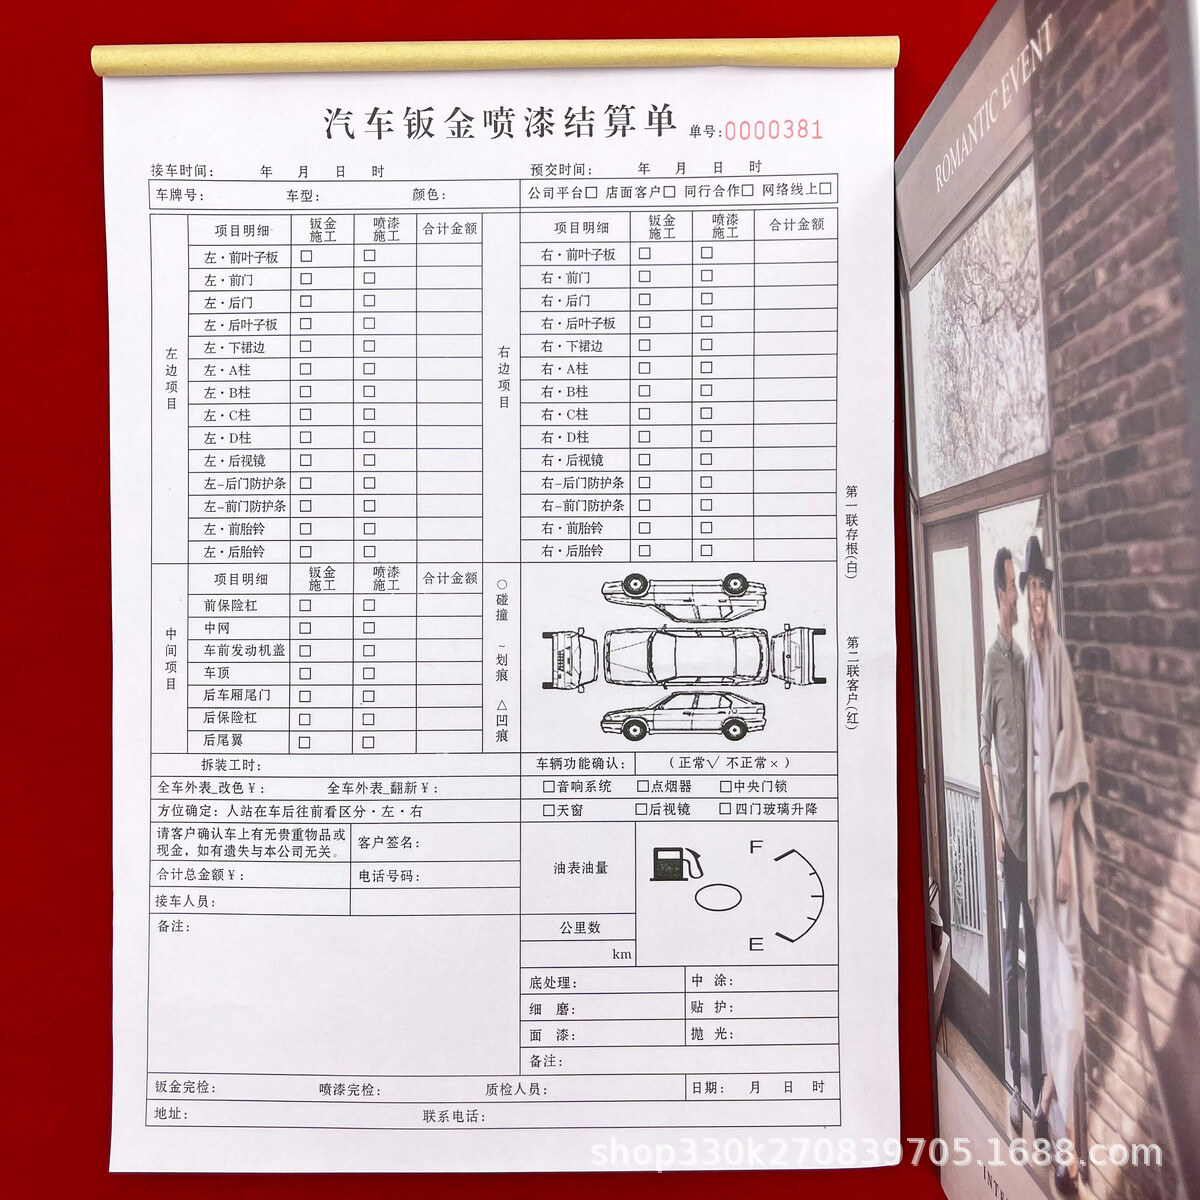 汽车钣金喷漆结算单 单号:0000381
接车时间: 年 月 日 时 预交时间: 年 月 日 时
车牌号: 车型: 颜色: 公司平台□ 店面客户□ 同行合作□ 网络线上□
左边项目
项目明细 钣金施工 喷漆施工 合计金额
左·前叶子板 □ □
左·前门 □ □
左·后门 □ □
左·后叶子板 □ □
左·下裙边 □ □
左·A柱 □ □
左·B柱 □ □
左·C柱 □ □
左·D柱 □ □
左·后视镜 □ □
左-后门防护条 □ □
左-前门防护条 □ □
左·前胎铃 □ □
左·后胎铃 □ □
右边项目
项目明细 钣金施工 喷漆施工 合计金额
右·前叶子板 □ □
右·前门 □ □
右·后门 □ □
右·后叶子板 □ □
右·下裙边 □ □
右·A柱 □ □
右·B柱 □ □
右·C柱 □ □
右·D柱 □ □
右·后视镜 □ □
右-后门防护条 □ □
右-前门防护条 □ □
右·前胎铃 □ □
右·后胎铃 □ □
中间项目
项目明细 钣金施工 喷漆施工 合计金额
前保险杠 □ □
中网 □ □
车前发动机盖 □ □
车顶 □ □
后车厢尾门 □ □
后保险杠 □ □
后尾翼 □ □
○碰撞 ~划痕 △凹痕
第一联存根(白)
第二联客户(红)
拆装工时: 车辆功能确认: (正常√ 不正常×)
全车外表_改色¥: 全车外表_翻新¥: □音响系统 □点烟器 □中央门锁
方位确定: 人站在车后往前看区分·左·右 □天窗 □后视镜 □四门玻璃升降
请客户确认车上有无贵重物品或
现金,如有遗失与本公司无关。
客户签名:
合计总金额¥: 电话号码:
接车人员:
备注:
油表油量 F E
公里数
km
底处理: 中 涂:
细 磨: 贴 护:
面 漆: 抛 光:
备注:
钣金完检: 喷漆完检: 质检人员: 日期: 月 日 时
地址: 联系电话:
ROMANTIC EVENT
shop330k270839705.1688.com